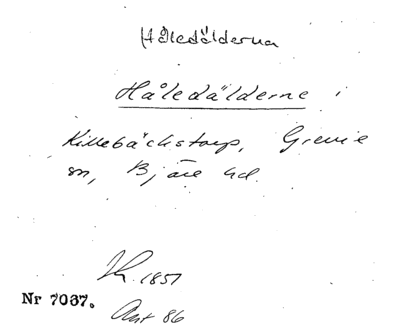 Håledälderna
Håledälderne i
Killebäckstorp, Grevie
sn, Bjäre hd.
Lk. 1851
Nr 7037.
Akt 86